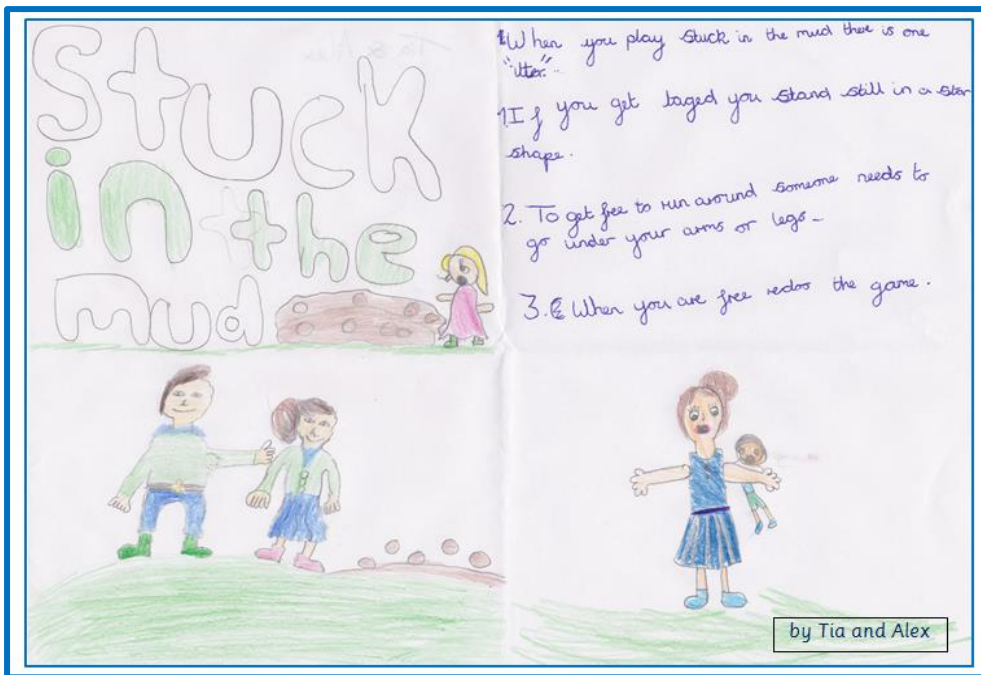 Stuck
in the
mud
When you play stuck in the mud there is one
"itter"
1. If you get taged you stand still in a star
shape.
2. To get free to run around someone needs to
go under your arms or legs
3. When you are free redoo the game.
by Tia and Alex